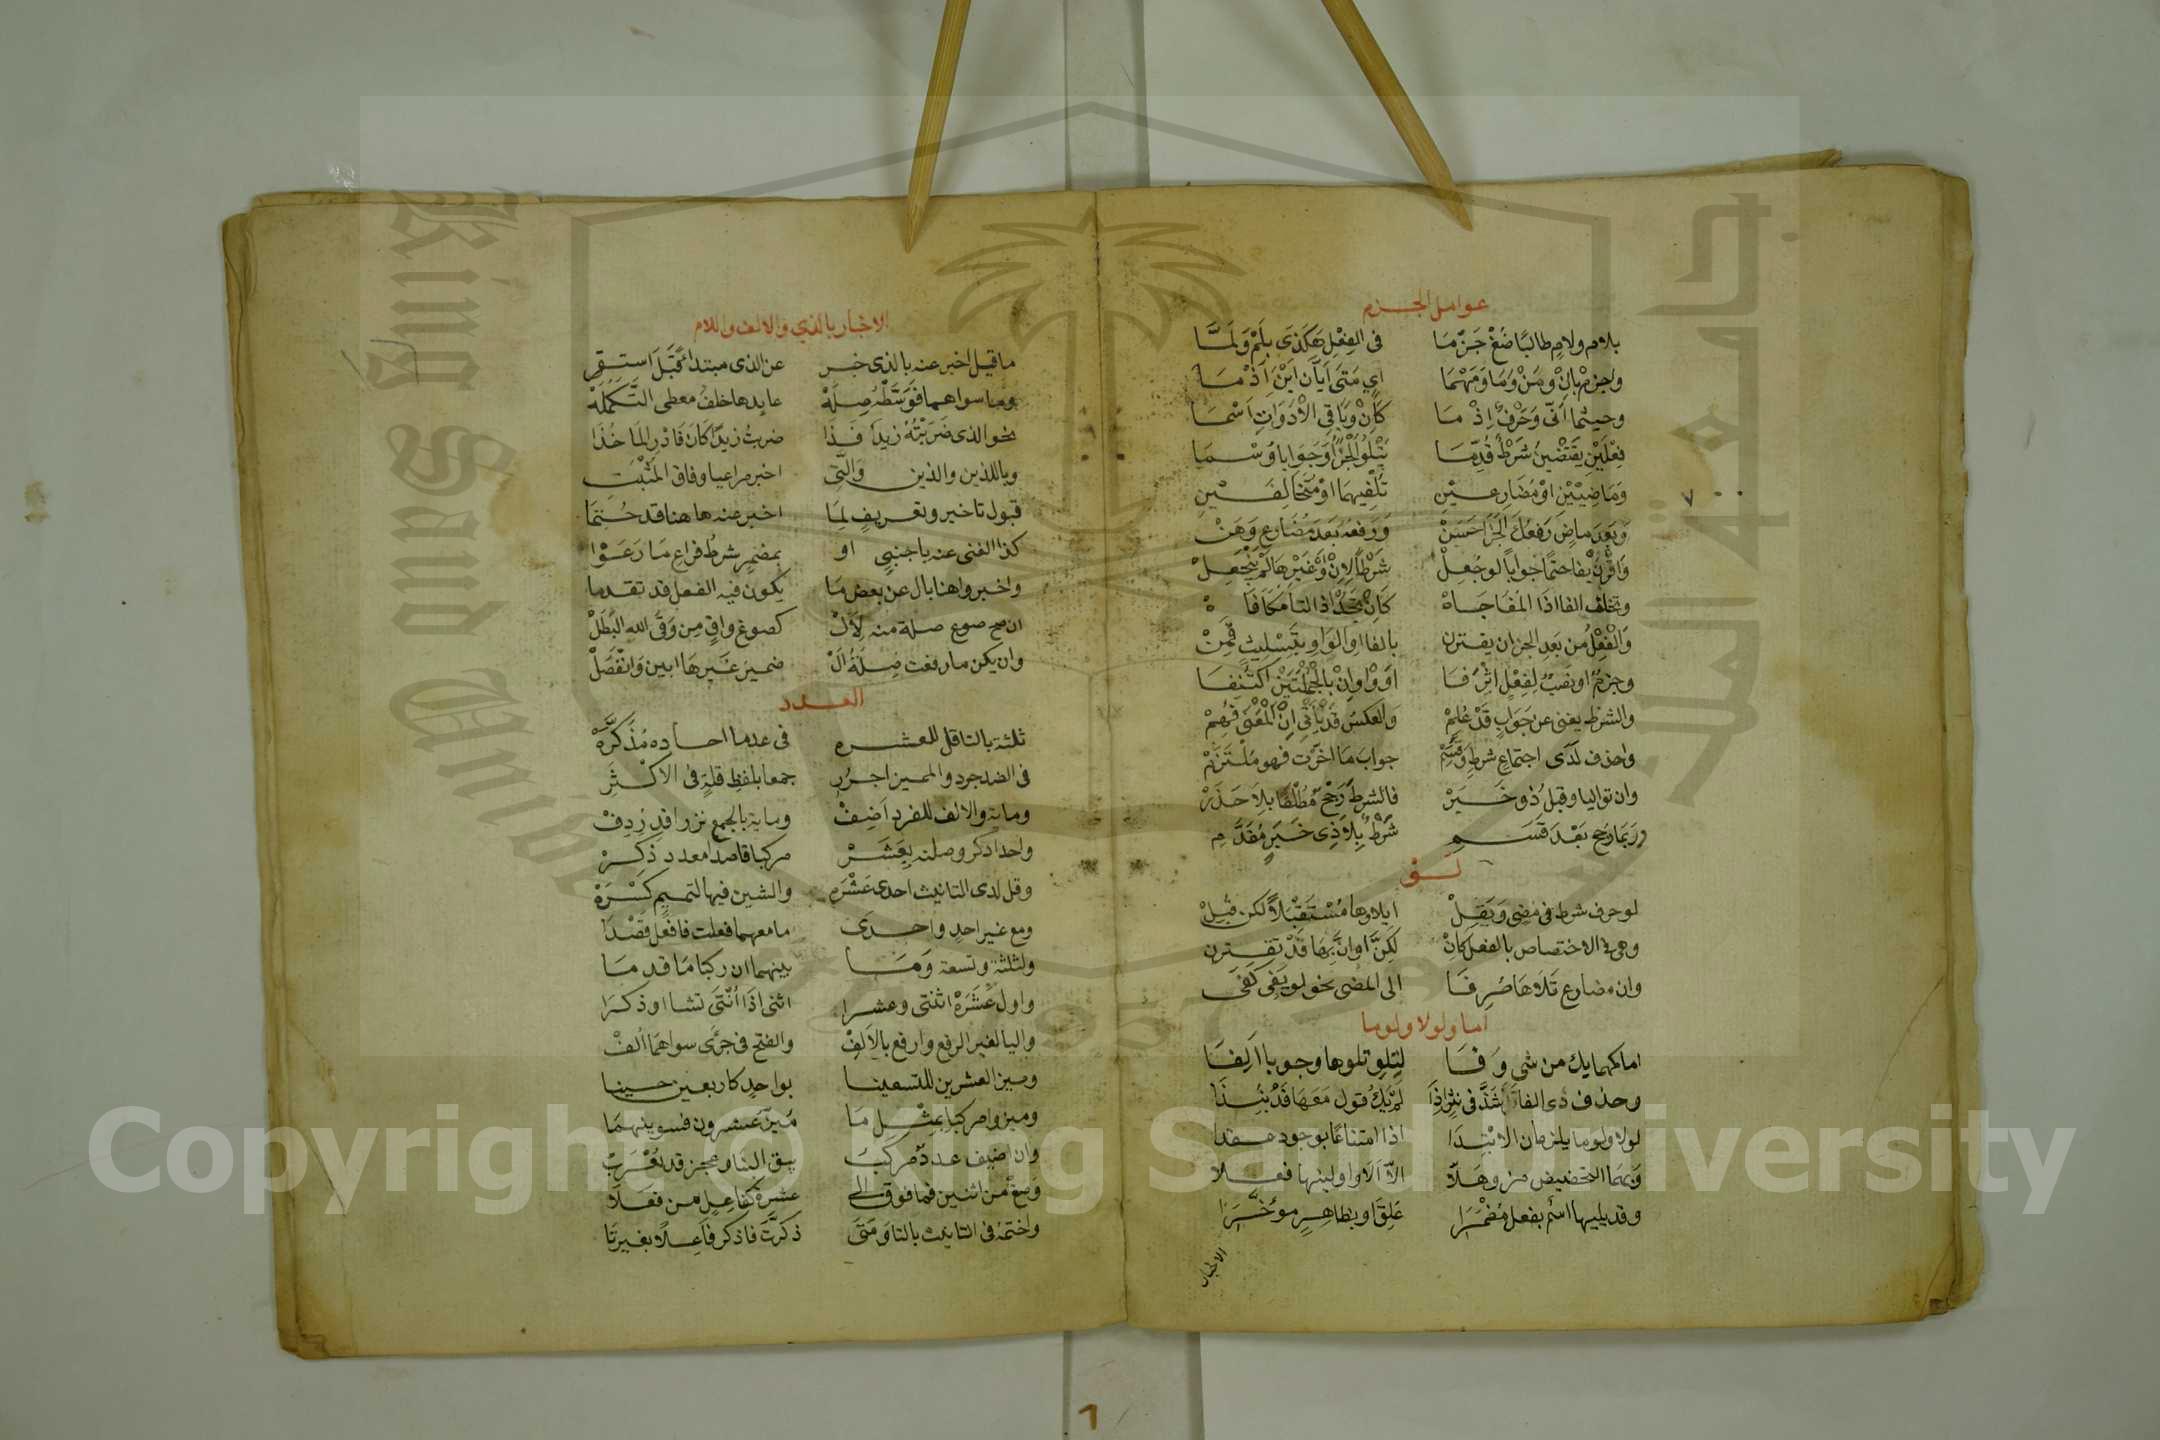 عوامل الجزم
بلام ولام طالبا ضَعْ جَزْمَا في الفِعْلِ هَكَذَى بِلَمْ وَلَمَّا
واجزِمْ بإنْ ومَنْ وَمَا وَمَهْمَا اي مَتَى اَيّانَ ايْنَ اِذْ مَا
وحيثما اَنّى وَحَرْفٌ اِذْ مَا كَاِنْ وَبَاقِي الْأدَوَاتِ اَسْمَا
فِعْلَيْنِ يَقْتَضِينُ شَرْطٌ قُدِّمَا يَتْلُو الْجَزَا وَجَوَابا وُسْمَا
وَمَاضِيَيْنِ اوْ مُضَارِعَيْنِ تُلْفِيهِمَا اوْ مُتَخَالِفَيْنِ
وَبَعْدَ مَاضٍ رَفْعُكَ الْجَزَا حَسَنْ وَرَفْعُهُ بَعْدَ مُضَارِعٍ وَهَنْ
وَاقْرُنْ بِفَا حَتْمًا جَوَابًا لَوْ جُعِلْ شَرْطًا لِاِنْ اَوْ غَيْرِهَا لَمْ يَنْجَعِلْ
وتخلف الفا اذا المفَاجَاهْ كَاِنْ تَجُدْ اذا لنا مكَافَاهْ
وَالْفِعْلُ مِن بَعدِ الجزا ان يقترن بالفا او الواو بِتَثليثٍ قَمِنْ
وجزمٌ او نصبٌ لِفِعْلٍ اثْرَ فَا اَوْ وَاوٍ اِنْ بِالْجُمْلَتَيْنِ اكْتُنِفَا
والشرط يغنى عن جَوَابٍ قَدْ عُلِمْ وَالعَكسُ قَدْ يَأْتِي اِنِ الْمَعْنَى فُهِمْ
واحذف لَدَى اجتماعِ شرطٍ وَقَسَمْ جوابَ مَا اخّرْت فهو مُلْتَزَمْ
وان تواليا وقبلُ ذو خَبَرْ فالشرطَ رَجِّحْ مُطْلَقًا بلا حَذَرْ
وربما رجح بَعْدَ قَسَمِ شَرْطٌ بِلا ذِى خَبَرٍ مُقَدَّمِ
لَوْ
لو حرف شرط في مضي وَيَقِلْ ايلاوها مُسْتَقْبَلًا لكن قُبِلْ
وهي في الاختصاص بالفعل كاِنْ لَكِنَّ لو اَنَّ بِهَا قَدْ تقترن
وان مضارع تَلاهَا صُرِفَا الى المضي نحو لو يَفي كَفَى
اما ولولا ولوما
اما كمهما يك من شي وَفَا لِتِلوِ تلوها وجوبا اُلِفَا
وحذف ذي الفا قَلَّ في نثرٍ اِذَا لم يَكُ قول مَعَهَا قَدْ نُبِذَا
لولا ولوما يلزمان الابْتِدَا اذا امتناعًا بوجود عقدا
وَبِهِمَا التحضيض مِز وهَلَّا اَلَّا اَلا واولينها فعلا
وقد يليها اسْمٌ بفعل مُضْمَرَا عُلِّقَ او بظاهرٍ مؤخَّرَا
الاخبار
الاخبار بالذي والالف واللام
ما قيل اخبر عنه بالذي خبر عن الذي مبتدأ قَبْلُ استقر
وما سواهما فَوَسِّطْهُ صِلَهْ عايدها خلفُ معطي التَّكْمِلَهْ
نحو الذي ضَرَبْتُهُ زيدٌ فَذَا ضربتُ زيدًا كانَ فَادْرِ المَاخَذَا
وباللذين والذين والَّتِي اخبر مراعيا وفاق المُثْبَت
قبول تاخير وتعريفٍ لِمَا اخبر عنه هاهنا قد حُتِمَا
كذا الغنى عنه باجنبي او بمضمرٍ شرطٌ فراعِ مَا رَعَوْا
واخبروا هنا بال عن بعض مَا يكون فيه الفعل قد تقدما
ان صح صوغ صلة منه لِاَلْ كصوغ واقٍ مِن وَقَى الله البَطَلْ
وان يكن ما رفعت صِلَةُ اَلْ ضميرَ غَيرِهَا ابين وَانْفَصَلْ
العدد
ثلثة بالتا قل للعشره في عد ما احاده مُذَكَّرَهْ
في الضد جرد والمميز اجرر جمعا بلفظِ قلةٍ في الاكثَرِ
ومائة والالف للفرد اَضِفْ ومايةٌ بالجمع نزرا قد رُدِفْ
واحد اذكر وصلنه بِعَشَرْ مركبا قاصد معدود ذكرْ
وقل لدى التانيث احدى عَشْرَه والشين فيها لتميم كَسْرَهْ
ومع غير احدٍ واحدَى ما معهما فعلت فافعل قَصْدَا
ولثلثة وتسعة وَمَا بينهما ان ركبا مَا قدمَا
واول عَشَرَةْ اثنتى وعشرا اثنى اذَا اُنْثَى تشا او ذكرَا
واليا لغير الرفع وارفع بالاَلِفْ والفتح في جزءَى سواهمَا اُلفْ
وميز العشرين للتسعينا بواحدٍ كاربعين حينا
وميزوا مركبا بمثل مَا مُيِّزَ عشرون فسوينهمَا
وان اضيف عددٌ مركَّبُ يبق البنا وعجز قد يُعْرَبُ
وَصُغْ مِن اثنين فما فوق الى عشرة كفاعِلٍ من فَعَلَا
واختمْهُ في التانيث بالتا وَمَتَى ذكرْتَ فاذكر فاعِلًا بغيرِ تَا